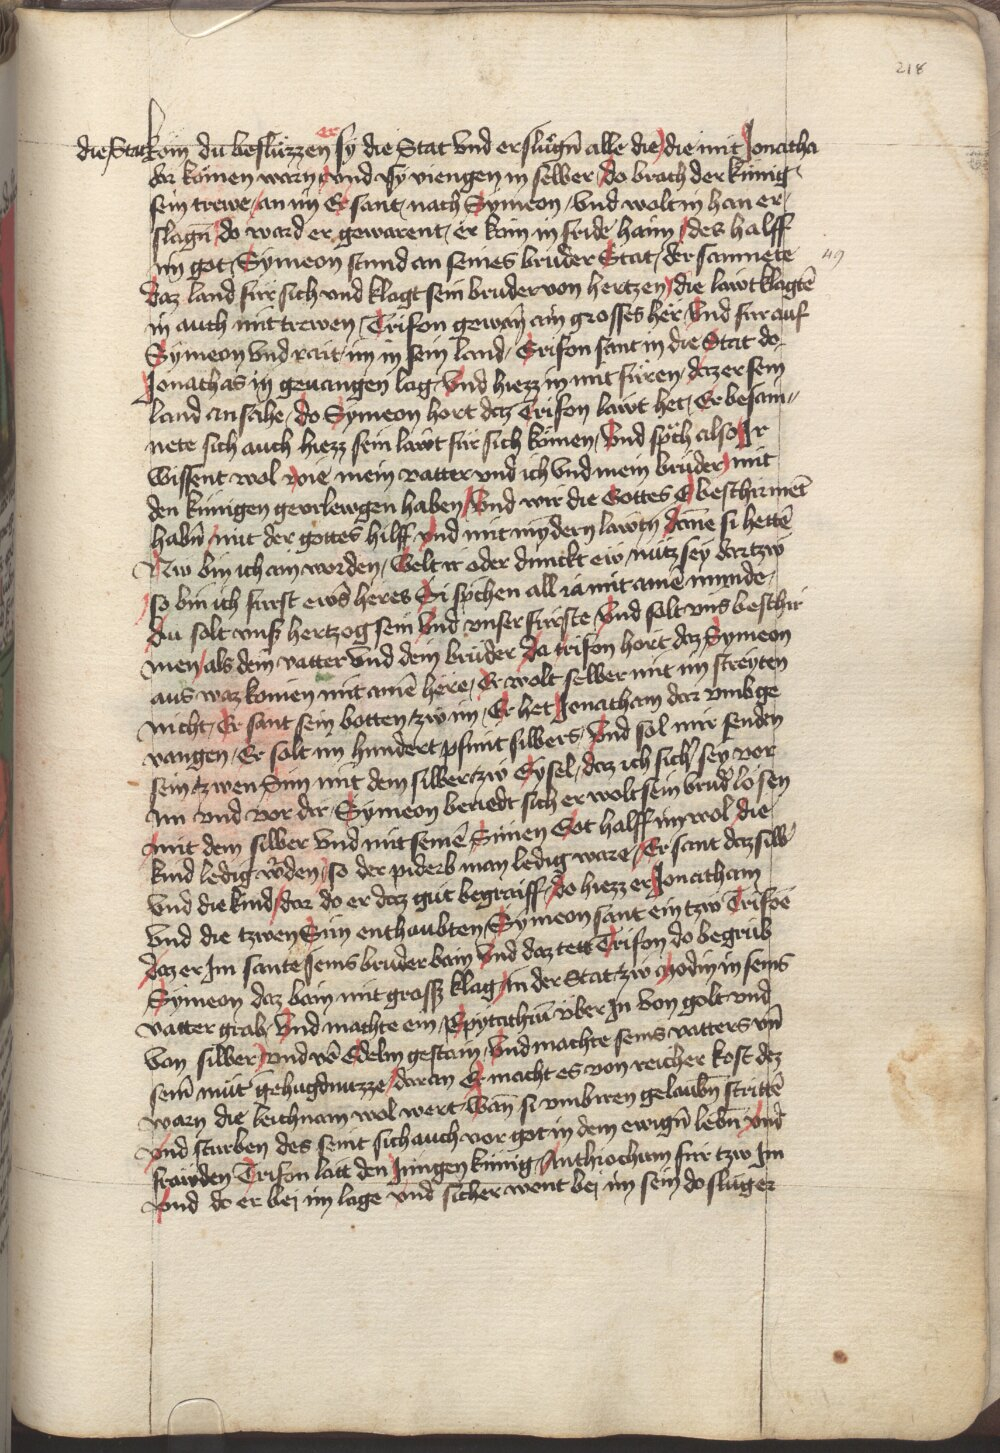 218
die Stat kom du besluzzen er sy die Stat vnd erslugn̄ alle die / die mit Jonatha
dar komen warn / vnd sy viengen in selber / do brach der kunig
sein trewe / an im Er sant / nach Symeon / Vnd wolt in han er
slagn̄ / do ward er gewarent / er kam in fride haim / des halff
im got / Symeon stund an seines bruder Stat / der samnete
49
daz land für sich vnd klagt sein bruder von hertzen / die lawt klagtē
in auch mit trewen / Trifon gewan ain grosses her / Vnd fur auf
Symeon vnd rait im in sein land / Trifon sant in die Stat do
Jonathas in geuangen lag / Vnd hiezz in mit füren / daz er sein
land an sahe / do Symeon hort daz Trifon lawt het / Er besam
nete sich auch hiezz sein lawt für sich komen / Vnd sp̄ch also Ir
Wissent wol wie mein vatter vnd ich vnd mein bruder / mit
den kunigen geurlewgen haben / Vnd wir die Gottes E beschirmet
habn̄ / mit der gottes hilff vnd mit myndern lawtn̄ / danne si hettē
Nw bin ich ain worden / Welt ir oder dunckt ew nutz sey dartzw
so bin ich furst ewrs heres Si sp̄chen all ia mit ainē munde /
du solt vnser hertzog sein Vnd vnser furste / Vnd solt vns beschir
men / als dein vatter vnd dein bruder da trifon hort daz Symeon
aus waz komen mit ainē here / Er wolt selber mit im streyten
nicht / Er sant sein botten / tzw im / Er het Jonatham dar vmb ge
vangen / Er solt im hundert pfunt silbers / Vnd sol mir senden
sein tzwen Sun mit dem silber tzw Gysel / daz ich sichr̄ sey vor
im vnd vor dir / Symeon beriedt sich er wolt sein brud̄ losen
mit dem silber vnd mit seinē Sunen Got halff im wol die
kind ledig w̄den / so der piderb man ledig ware / Er sant daz silb̄
vnd die kind / dar do er daz gut begraiff / do hiezz er Jonatham
vnd die tzwen Sun enthaubten / Symeon sant ein tzw Trifoē
daz er Im sante seins bruder bain Vnd daz tett Trifon do begrub
Symeon daz bain mit grossz klag / in der Stat tzw Modin in seins
vatter grab / Vnd machte ein Epytathiū vber In von golt vnd
von silber / vnd vō Edelm gestain / Vnd machte seins vatters vn̄
seinr̄ mut̄ gehugdnuzze / daran Er macht es von reicher kost daz
warn die leichnam wol wert / Wan si vmb iren gelaubn̄ strittē
vnd sturben des seint sich auch vor got in dem ewign̄ lebn̄ vnd
frawden Trifon latt den Jungen kunig Anthiochum für tzw Im
vnd do er bei im lage vnd sicher went bei im sein do slug er